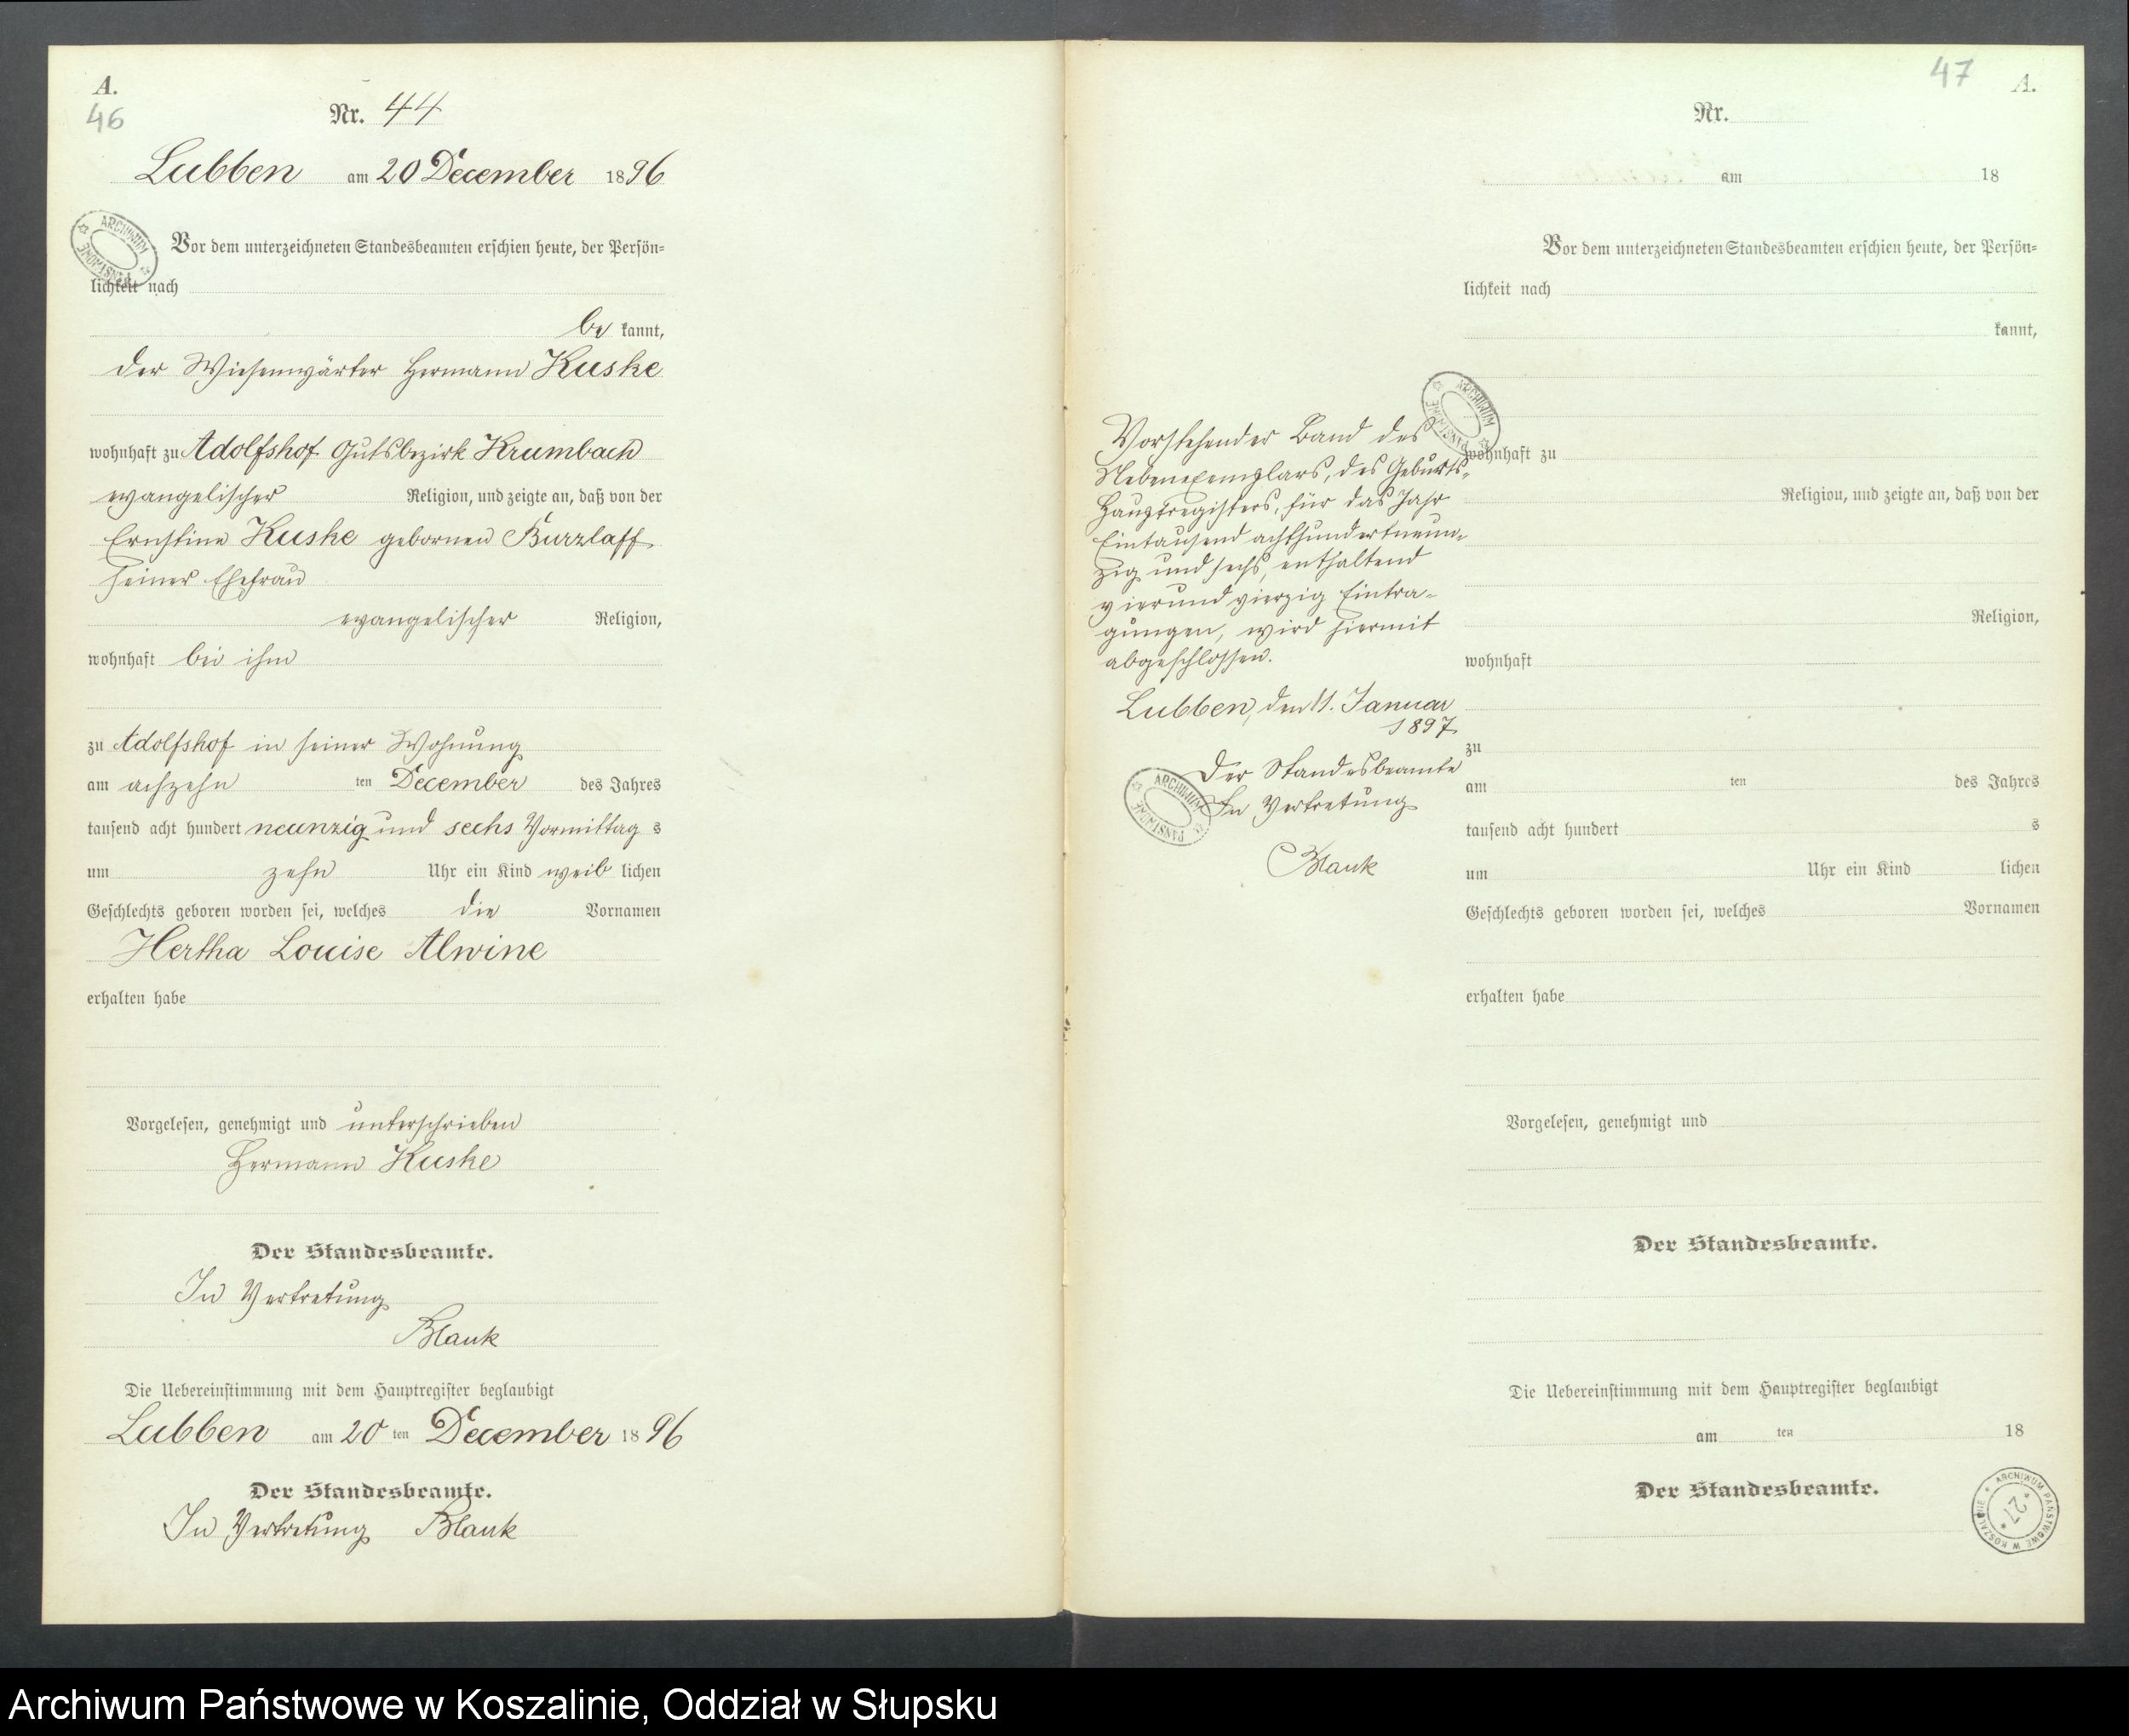 A.
46
Nr. 44
Lubben am 20 December 1896
Vor dem unterzeichneten Standesbeamten erschien heute, der Persön=
lichkeit nach
be kannt,
der Wiesenwärter Hermann Kuske
wohnhaft zu Adolfshof Gutsbezirk Krumbach
evangelischer Religion, und zeigte an, daß von der
Ernstine Kuske gebornen Burzlaff
seiner Ehefrau
evangelischer Religion,
wohnhaft bei ihm
zu Adolfshof in seiner Wohnung
am achzehn ten December des Jahres
tausend acht hundert neunzig und sechs Vormittag s
um zehn Uhr ein Kind weib lichen
Geschlechts geboren worden sei, welches die Vornamen
Hertha Louise Alwine
erhalten habe
Vorgelesen, genehmigt und unterschrieben
Hermann Kuske
Der Standesbeamte.
In Vertretung
Blank
Die Uebereinstimmung mit dem Hauptregister beglaubigt
Lubben am 20 ten December 1896
Der Standesbeamte.
In Vertretung Blank
ARCHIWUM PAŃSTWOWE
47 A.
Nr.
am 18
Vor dem unterzeichneten Standesbeamten erschien heute, der Persön=
lichkeit nach
kannt,
wohnhaft zu
Religion, und zeigte an, daß von der
Religion,
wohnhaft
zu
am ten des Jahres
tausend acht hundert s
um Uhr ein Kind lichen
Geschlechts geboren worden sei, welches Vornamen
erhalten habe
Vorgelesen, genehmigt und
Der Standesbeamte.
Die Uebereinstimmung mit dem Hauptregister beglaubigt
am ten 18
Der Standesbeamte.
Vorstehender Band des
Nebenexemplars, des Geburts-
Hauptregisters, für das Jahr
Eintausend achthundertneun-
zig und sechs, enthaltend
vierund vierzig Eintra-
gungen, wird hiermit
abgeschlossen.
Lubben, den 11. Januar
1897
Der Standesbeamte
In Vertretung
Blank
ARCHIWUM PAŃSTWOWE
ARCHIWUM PAŃSTWOWE
ARCHIWUM PAŃSTWOWE W KOSZALINIE
27
Archiwum Państwowe w Koszalinie, Oddział w Słupsku